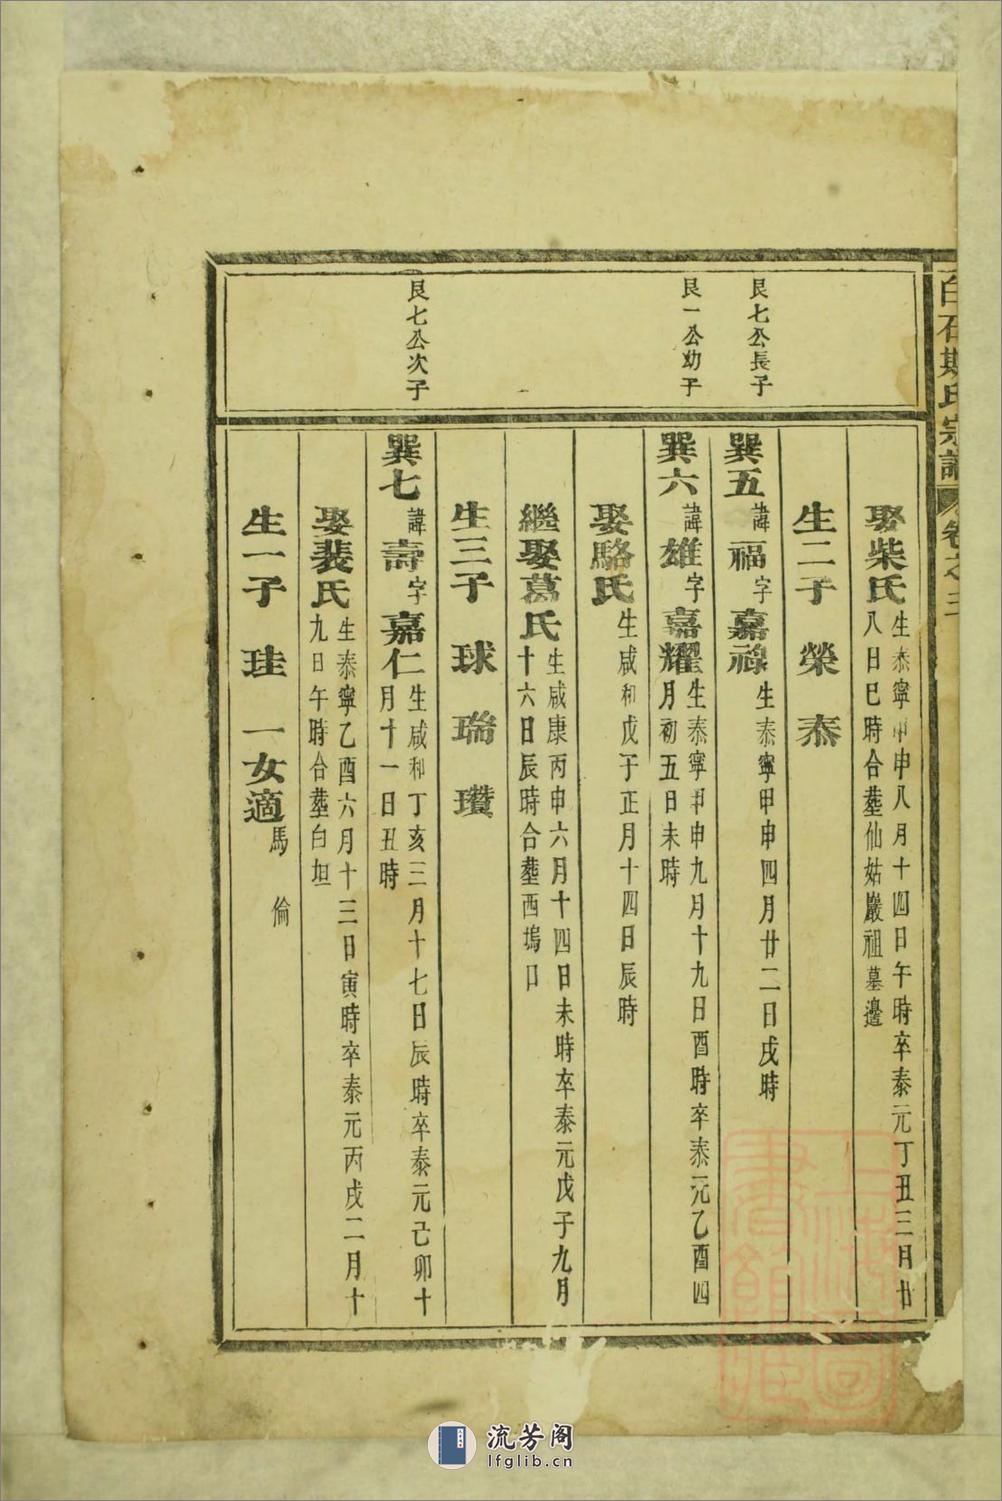 白石斯氏宗譜 卷之三
娶柴氏 生泰寧甲申八月十四日午時卒泰元丁丑三月廿
八日巳時合塟仙姑巖祖墓邊
生二子 榮 泰
艮七公長子
巽五 諱福字嘉祿 生泰寧甲申四月廿二日戌時
艮一公幼子
巽六 諱雄字嘉耀 生泰寧甲申九月十九日酉時卒泰元乙酉四
月初五日未時
娶駱氏 生咸和戊子正月十四日辰時
繼娶葛氏 生咸康丙申六月十四日未時卒泰元戊子九月
十六日辰時合塟西塢口
生三子 球 瑞 瓚
艮七公次子
巽七 諱壽字嘉仁 生咸和丁亥三月十七日辰時卒泰元己卯十
月十一日丑時
娶裴氏 生泰寧乙酉六月十三日寅時卒泰元丙戌二月十
九日午時合塟白坦
生一子 珪 一女適馬倫
流芳阁
lfglib.cn